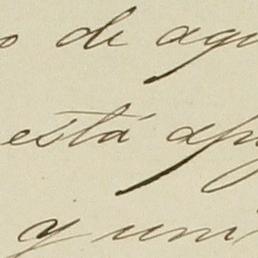 o de agu
está ap
y uni